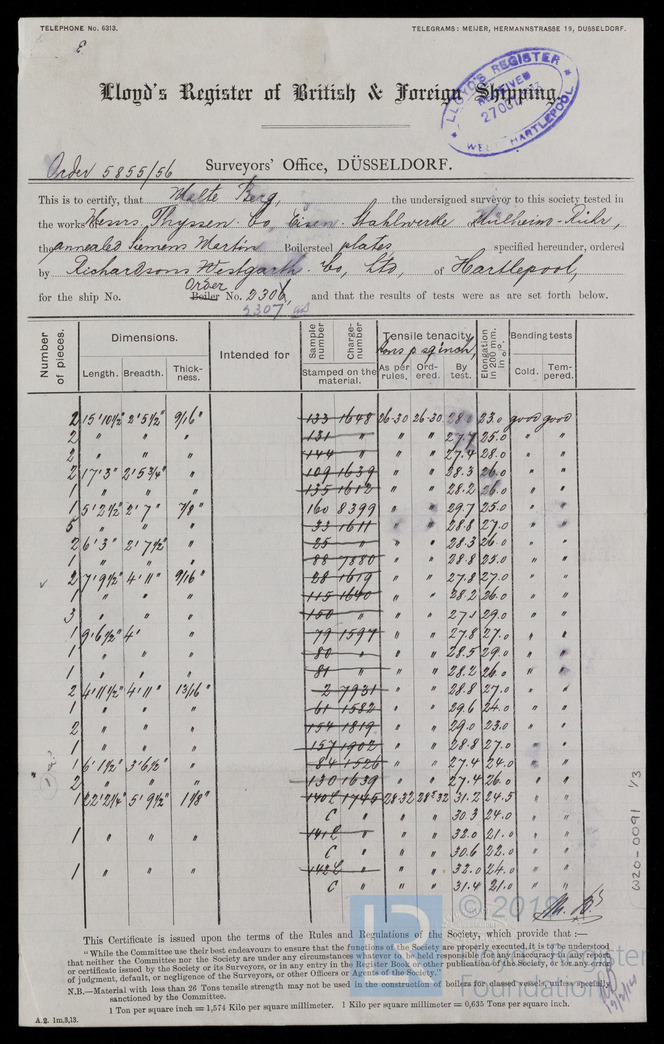 TELEPHONE No. 6313. TELEGRAMS: MEIJER, HERMANNSTRASSE 19, DUSSELDORF.
Lloyd's Register of British & Foreign Shipping.
LLOYD'S REGISTER
RECEIVED
WEST HARTLEPOOL
Order 5855/56 Surveyors' Office, DÜSSELDORF.
This is to certify, that Malte Berg, the undersigned surveyor to this society tested in
the works Messrs Thyssen & Co, Eisen & Stahlwerke Mülheim-Ruhr,
the annealed Siemens Martin Boilersteel plates specified hereunder, ordered
by Richardsons Westgarth & Co, Ltd, of Hartlepool,
Order
for the ship No. Boiler No. 2306, and that the results of tests were as are set forth below.
2307
Number of pieces. Dimensions. Intended for Sample number Charge-number Tensile tenacity Elongation in 200 mm. in %. Bending tests
tons p sq inch,
Length. Breadth. Thick-ness. Stamped on the material. As per rules. Ord-ered. By test. Cold. Tem-pered.
2 15'10½" 2'5½" 9/16" 133 1648 26.30 26.30 28.0 23.0 good good
2 " " " 131 " " " 27.7 25.0 " "
2 " " " 144 " " " 27.4 28.0 " "
2 17'3" 2'5¾" " 109 1639 " " 28.3 26.0 " "
1 " " " 135 1612 " " 28.2 26.0 " "
1 5'2½" 2'7" 7/8" 160 8399 " " 29.7 25.0 " "
5 " " " 33 1611 " " 28.8 27.0 " "
2 6'3" 2'7½" " 25 " " " 28.3 26.0 " "
1 " " " 88 7880 " " 28.8 25.0 " "
2 7'9½" 4'11" 9/16" 28 1619 " " 27.8 27.0 " "
1 " " " 115 1640 " " 28.2 26.0 " "
3 " " " 150 " " " 27.1 29.0 " "
1 9'6½" 4' " 79 1597 " " 27.8 27.0 " "
1 " " " 80 " " " 28.5 29.0 " "
1 " " " 81 " " " 28.2 26.0 " "
2 4'11½" 4'11" 13/16" 2 7931 " " 28.8 27.0 " "
1 " " " 61 1582 " " 29.6 24.0 " "
2 " " " 154 1819 " " 29.0 23.0 " "
1 " " " 157 1902 " " 28.8 27.0 " "
1 6'1½" 3'6½" " 84 1526 " " 27.4 24.0 " "
2 " " " 130 1639 " " 27.4 26.0 " "
1 22'2¼" 5'9½" 1⅛" 140 L 1745 28.32 28.32 31.2 24.5 " "
C " " " 30.3 24.0 " "
1 " " " 141 L " " " 32.0 21.0 " "
C " " " 30.6 22.0 " "
1 " " " 142 L " " " 32.0 24.0 " "
C " " " 31.4 21.0 " "
W20-0091 1/3
© 2019
Lloyd's Register
Foundation
This Certificate is issued upon the terms of the Rules and Regulations of the Society, which provide that :—
"While the Committee use their best endeavours to ensure that the functions of the Society are properly executed, it is to be understood
that neither the Committee nor the Society are under any circumstances whatever to be held responsible for any inaccuracy in any report
or certificate issued by the Society or its Surveyors, or in any entry in the Register Book or other publication of the Society, or for any error
of judgment, default, or negligence of the Surveyors, or other Officers or Agents of the Society."
N.B.—Material with less than 26 Tons tensile strength may not be used in the construction of boilers for classed vessels, unless specially
sanctioned by the Committee.
1 Ton per square inch = 1,574 Kilo per square millimetre. 1 Kilo per square millimetre = 0,635 Tons per square inch.
A.2. 1m,3,13.